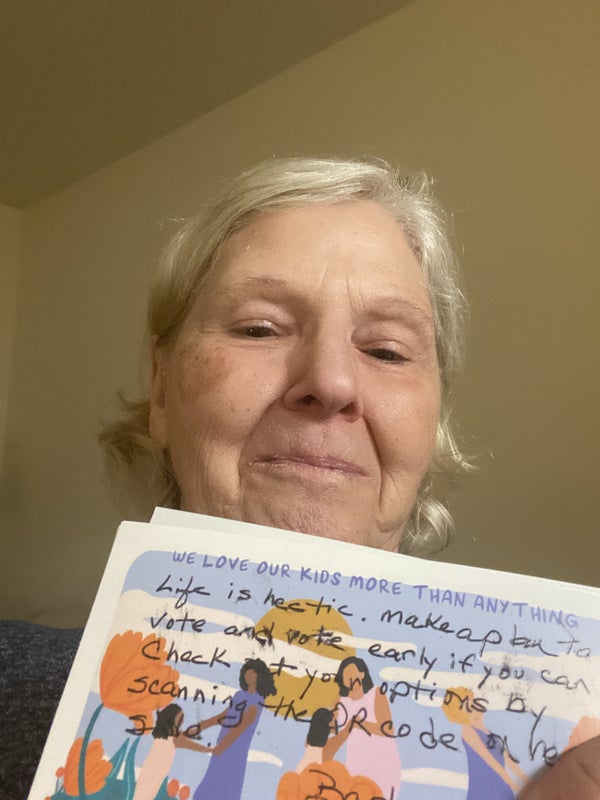 WE LOVE OUR KIDS MORE THAN ANYTHING
Life is hectic. make a plan to
vote and vote early if you can
Check out your options by
scanning the QR code on the
side.